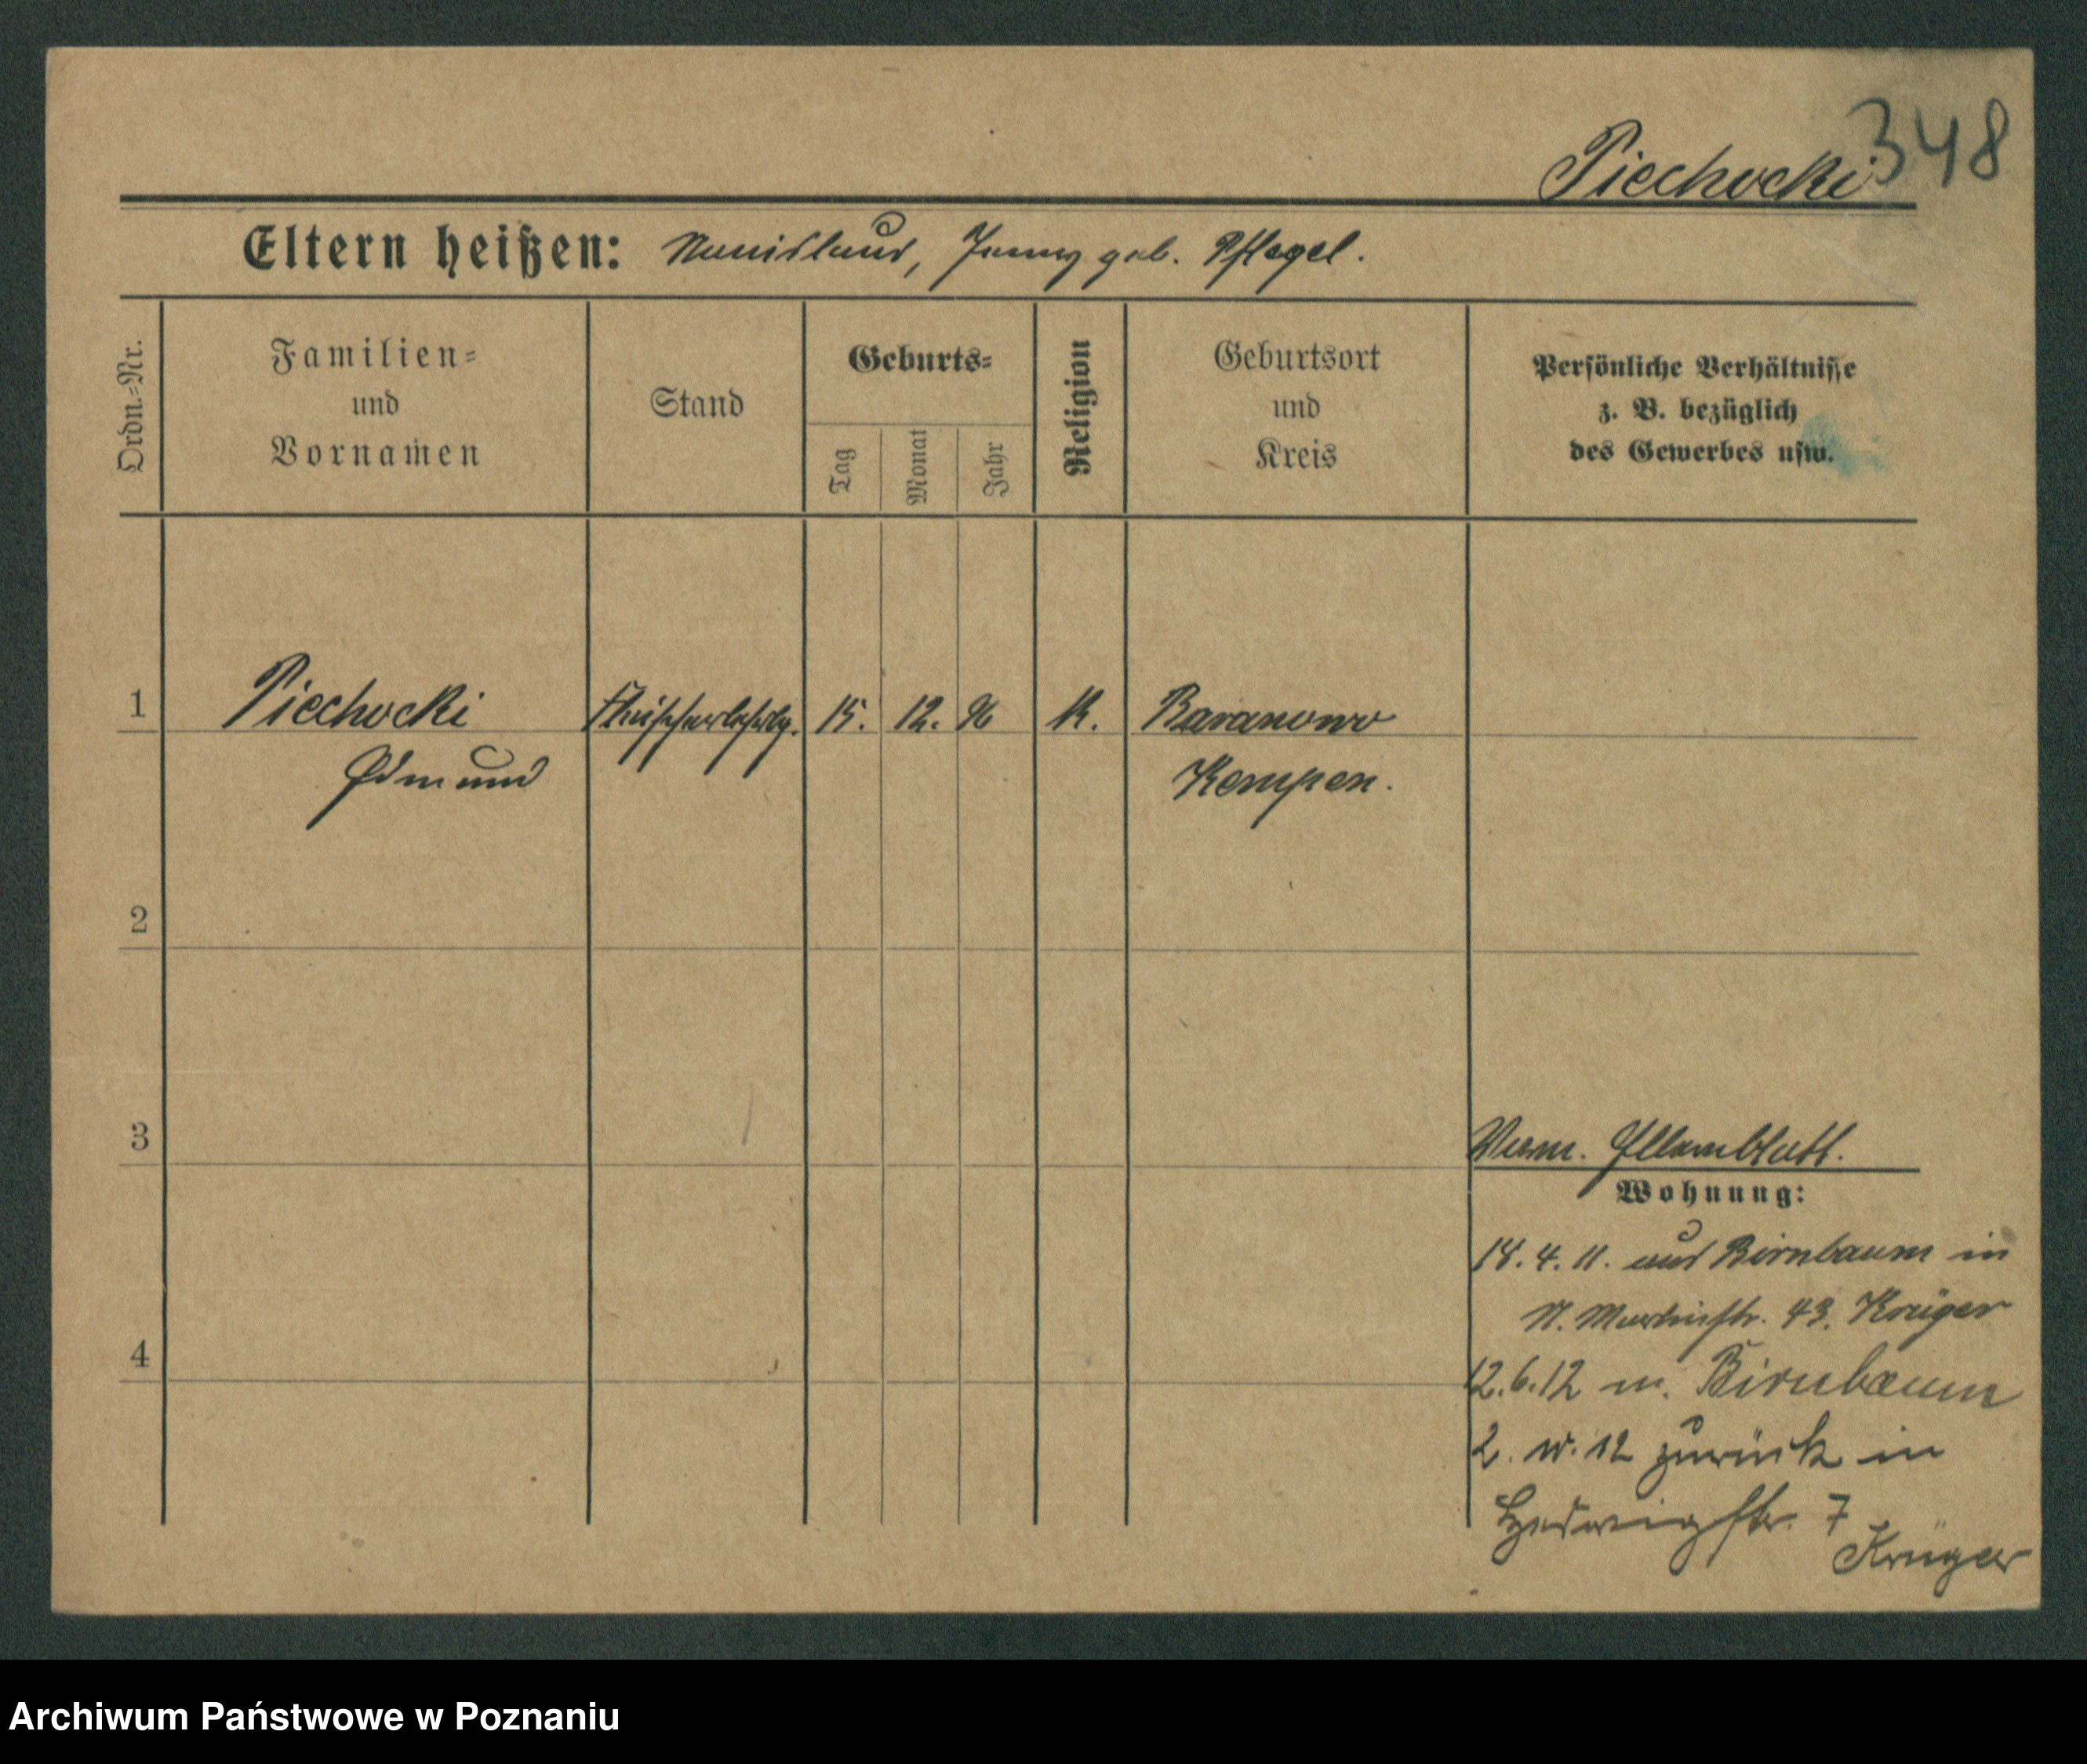 348
Piechocki
Eltern heißen: Jenny geb. Pflegel.
Ordn.-Nr.
Familien-
und
Vornamen
Stand
Geburts-
Tag
Monat
Jahr
Religion
Geburtsort
und
Kreis
Persönliche Verhältnisse
z. B. bezüglich
des Gewerbes usw.
1 Piechocki Fleischerlehrlg. 15. 12. 96 K. Baranowo
Edmund Kempen.
2
3
4
Wohnung:
18. 4. 11. aus Birnbaum in
St. Martinstr. 43. Krüger
12.6.12 n. Birnbaum
2. 10. 12 zurück in
Hedwigstr. 7
Krüger
Archiwum Państwowe w Poznaniu